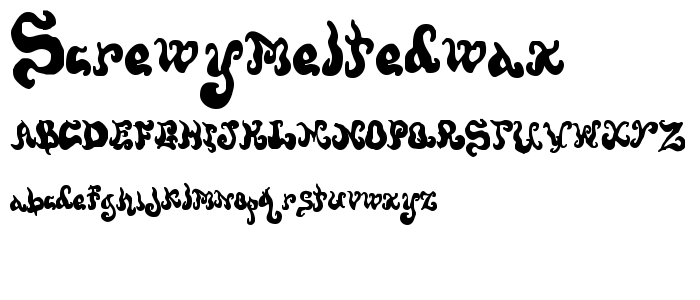 Screwymeltedwax
ABCDEFGHIJKLMNOPQRSTUVWXYZ
abcdefghijklmnopqrstuvwxyz